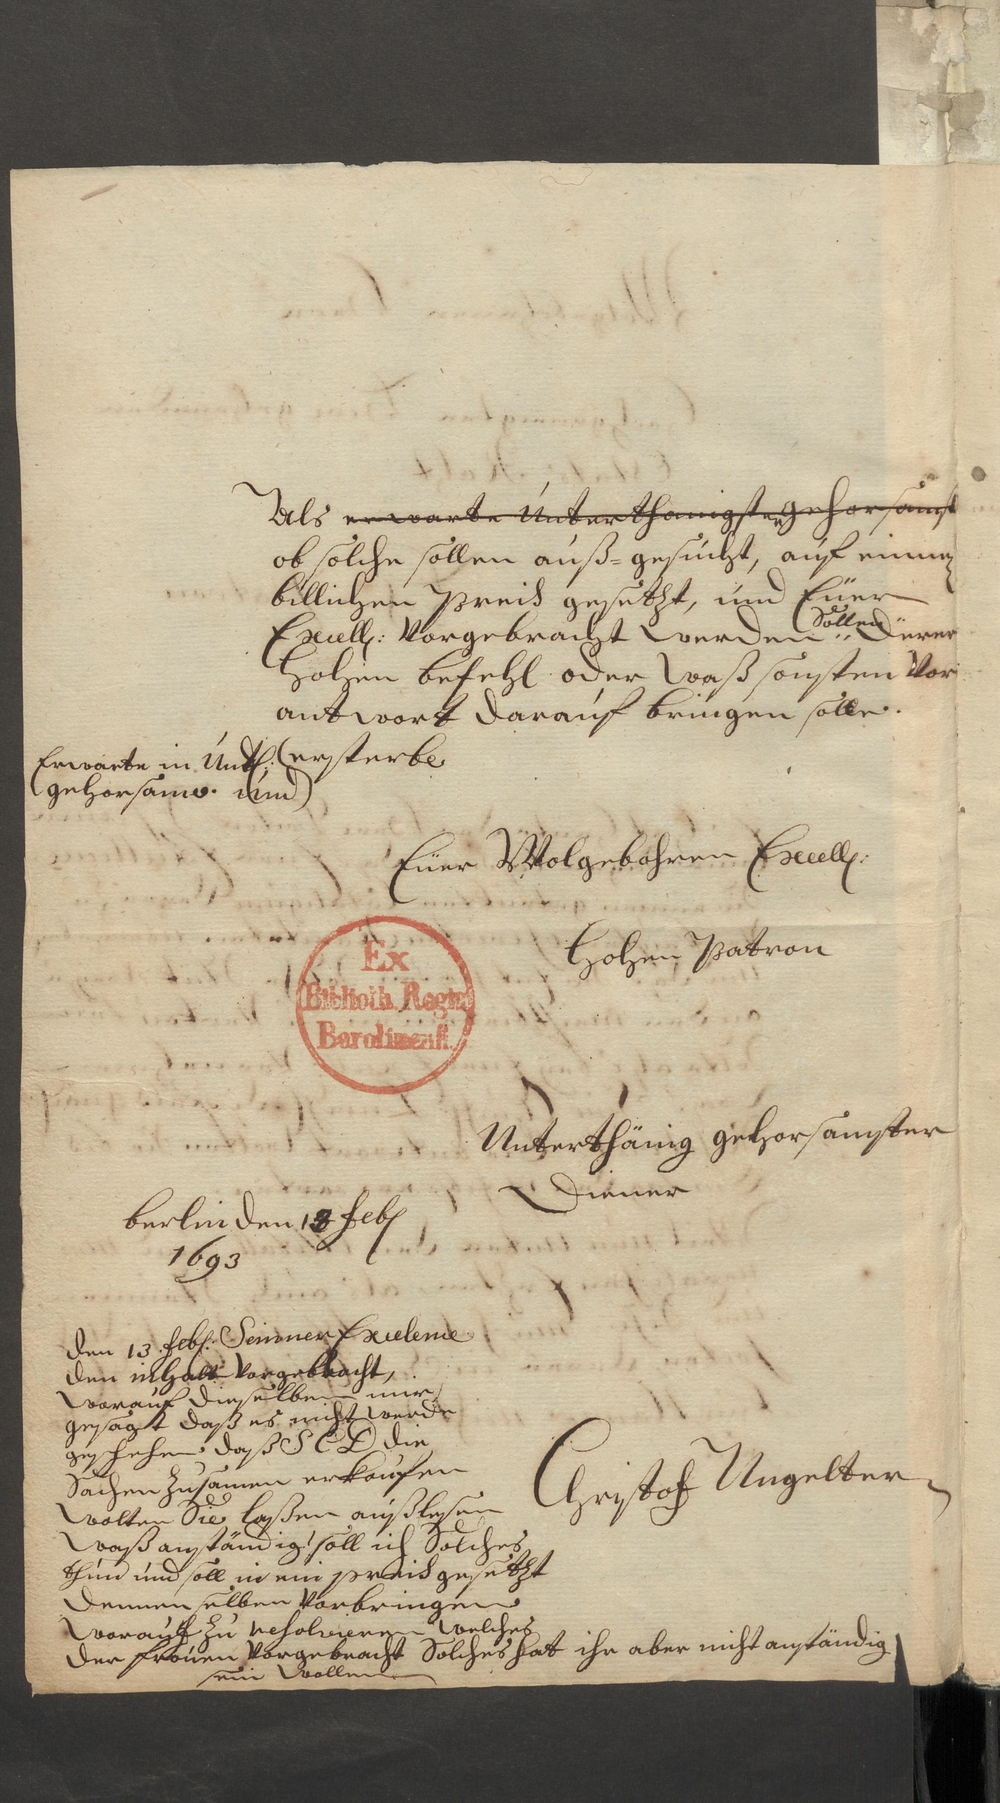 Als erwarte Unterthänigsten gehorsambst
ob solche sollen auß-gesucht, auf einen
billichen Preiß gesetzt, und Euer
Excell: Vorgebracht werden sollen Dero
Hohen befehl oder waß sonsten Vor
antwort darauf bringen solle.
Erwarte in Unth: (ersterbe
(gehorsamb. und)
Euer Wolgebohren Excell:
Hohen Patron
Ex
Biblioth. Regia
Berolinensi.
Unterthänig gehorsamster
Diener
berlin den 13 Feb
1693
den 13. Feb: Seinner Excelence
den inhalt Vorgebracht,
worauf dieselben mir
gesagt daß es nicht werde
geschehen daß S E D die
Sachen zusamen erkaufen
wolten Sie laßen außlesen
waß anständig soll ich Solches
thun und soll in ein preiß gesetzt
Dennenselben Vorbringen
worauf zu resolvieren welches
der frauen Vorgebracht Solches hat ihr aber nicht anständig
sein wollen
Christof Ungelter